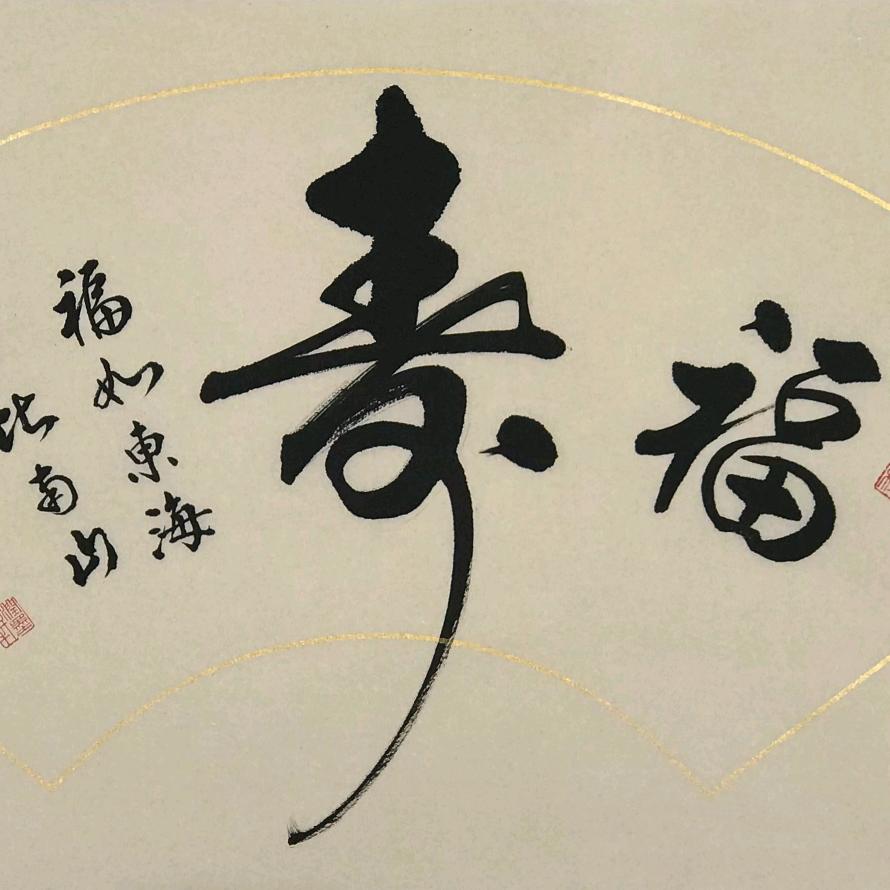 福寿
福如東海
比南山